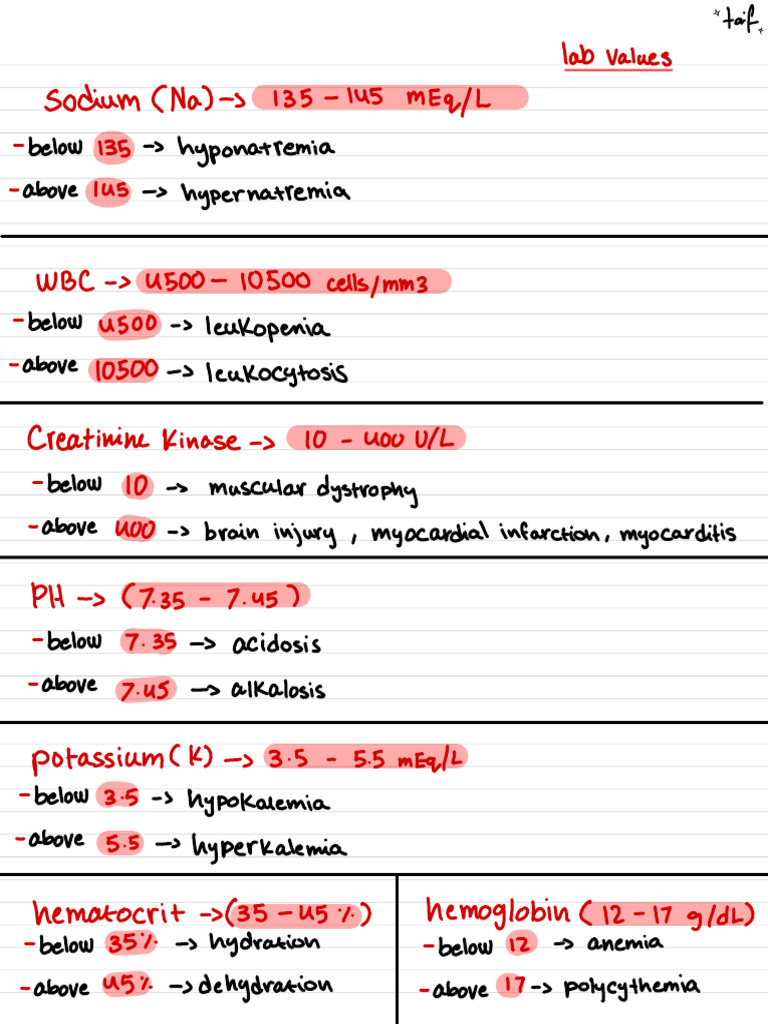 *taif*
lab values
Sodium (Na) -> 135 - 145 mEq/L
- below 135 -> hyponatremia
- above 145 -> hypernatremia
WBC -> 4500 - 10500 cells/mm3
- below 4500 -> leukopenia
- above 10500 -> leukocytosis
Creatinine Kinase -> 10 - 400 U/L
- below 10 -> muscular dystrophy
- above 400 -> brain injury, myocardial infarction, myocarditis
PH -> (7.35 - 7.45)
- below 7.35 -> acidosis
- above 7.45 -> alkalosis
potassium (K) -> 3.5 - 5.5 mEq/L
- below 3.5 -> hypokalemia
- above 5.5 -> hyperkalemia
hematocrit -> (35 - 45 %)
- below 35% -> hydration
- above 45% -> dehydration
hemoglobin (12 - 17 g/dL)
- below 12 -> anemia
- above 17 -> polycythemia